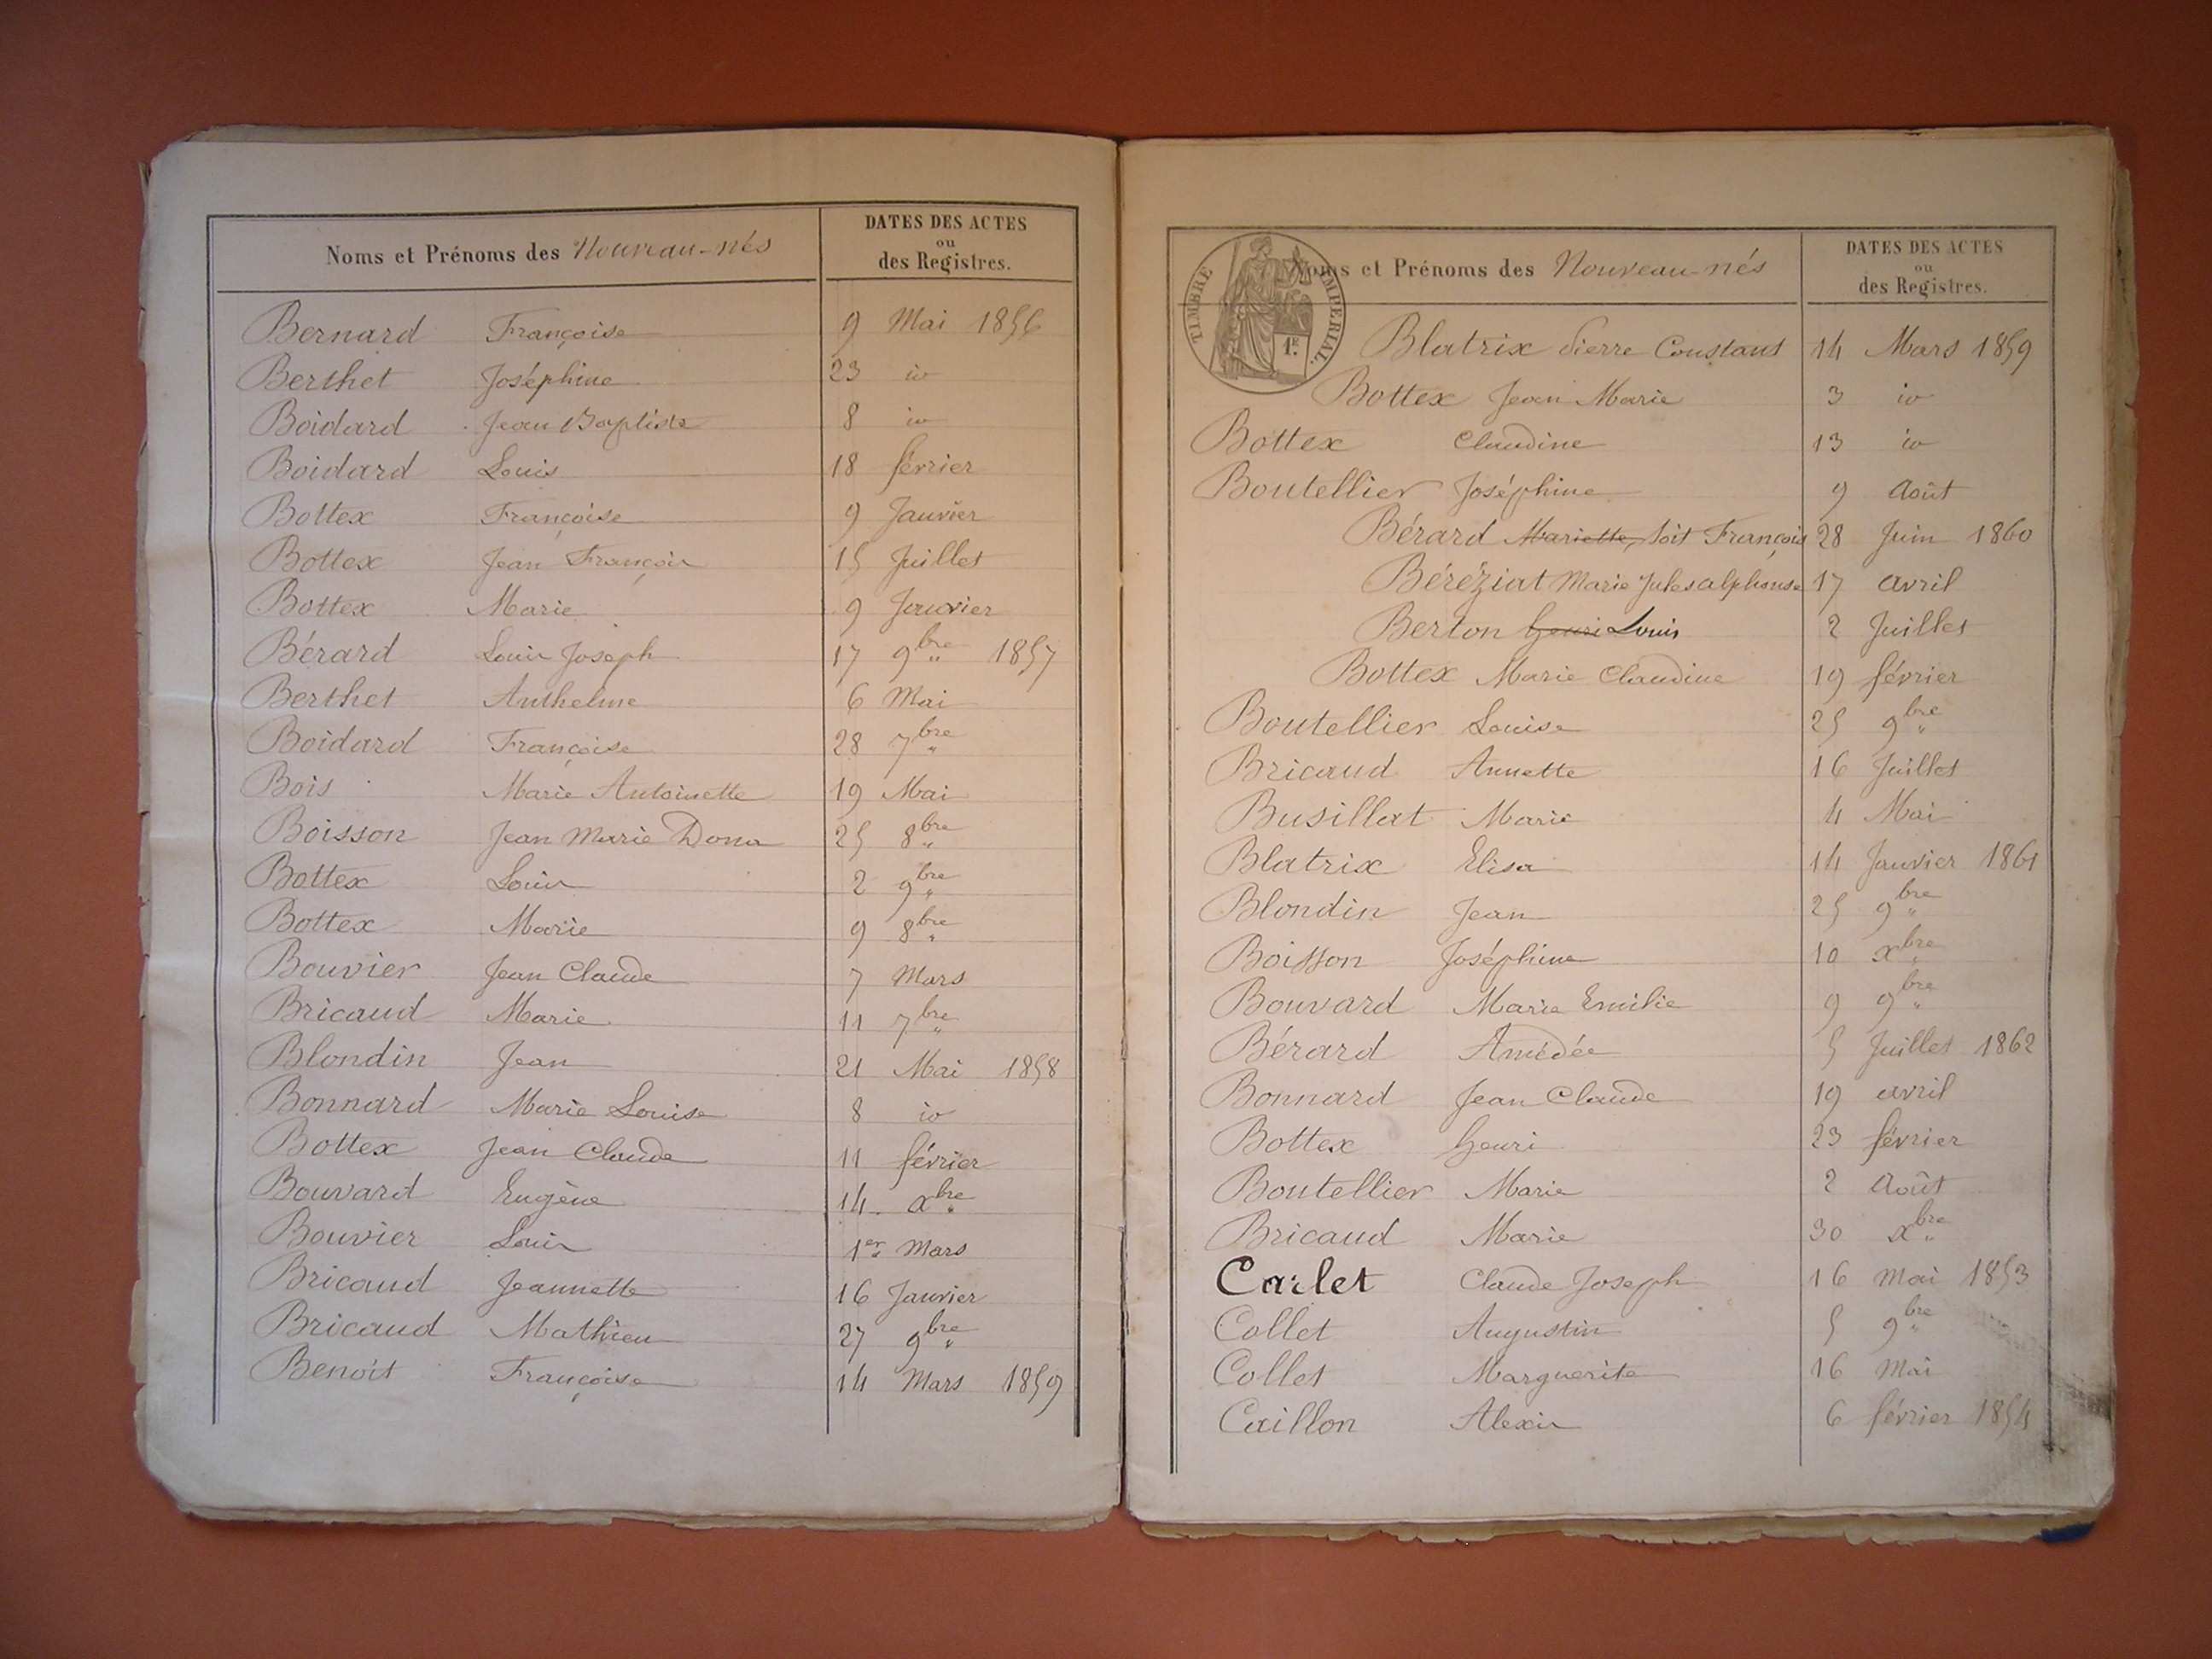 Noms et Prénoms des Nouveau-nés
DATES DES ACTES
ou
des Registres.
Bernard Françoise 9 Mai 1856
Berthet Joséphine 23 id
Boidard Jean Baptiste 8 id
Boidard Louis 18 février
Bottex Françoise 9 Janvier
Bottex Jean François 15 Juillet
Bottex Marie 9 Janvier
Bérard Louis Joseph 17 9bre 1857
Berthet Anthelme 6 Mai
Boidard Françoise 28 7bre
Bois Marie Antoinette 19 Mai
Boisson Jean Marie Dona 25 8bre
Bottex Louis 2 9bre
Bottex Marie 9 8bre
Bouvier Jean Claude 7 Mars
Bricaud Marie 11 7bre
Blondin Jean 21 Mai 1858
Bonnard Marie Louise 8 id
Bottex Jean Claude 11 février
Bouvard Eugène 14 xbre
Bouvier Louis 1er Mars
Bricaud Jeannette 16 Janvier
Bricaud Mathieu 27 9bre
Benoit Françoise 14 Mars 1859
TIMBRE IMPÉRIAL.
1F.
Noms et Prénoms des Nouveau-nés
DATES DES ACTES
ou
des Registres.
Blatrix Pierre Constant 14 Mars 1859
Bottex Jean Marie 3 id
Bottex Claudine 13 id
Boutellier Joséphine 9 Août
Bérard Mariette, soit François 28 Juin 1860
Béréziat Marie Jules alphonse 17 avril
Berton henri Louis 2 Juillet
Bottex Marie Claudine 19 février
Boutellier Louise 25 9bre
Bricaud Annette 16 Juillet
Busillat Marie 4 Mai
Blatrix Elisa 14 Janvier 1861
Blondin Jean 25 9bre
Boisson Joséphine 10 xbre
Bouvard Marie Emilie 9 9bre
Bérard Amédée 5 Juillet 1862
Bonnard Jean Claude 19 avril
Bottex henri 23 février
Boutellier Marie 2 Août
Bricaud Marie 30 xbre
Carlet Claude Joseph 16 Mai 1853
Collet Augustin 5 9bre
Collet Marguerite 16 Mai
Caillon Alexis 6 février 1854